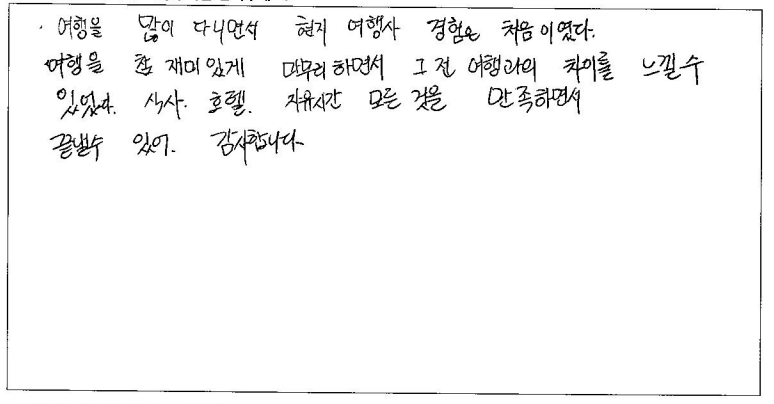 · 여행을 많이 다니면서 현지 여행사 경험은 처음이였다.
여행을 참 재미있게 마무리하면서 그 전 여행과의 차이를 느낄수
있었다. 식사. 호텔. 자유시간 모든 것을 만족하면서
끝낼수 있어. 감사합니다.